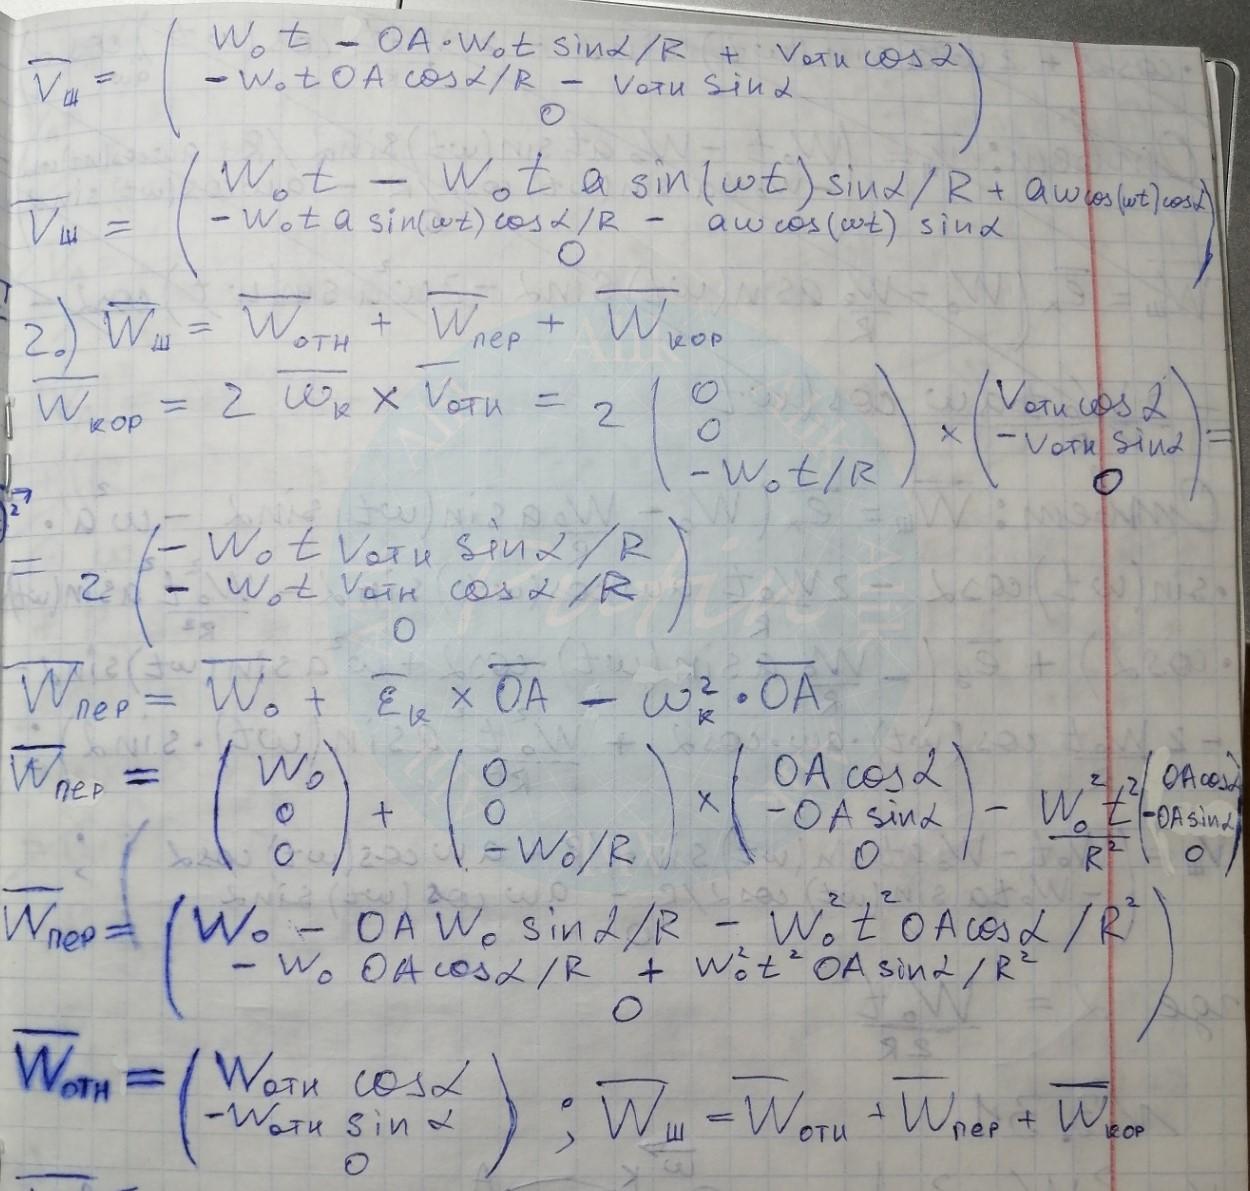 V̅ш = ( W₀t − OA·W₀t sinα/R + Vотн cosα
− W₀t OA cosα/R − Vотн sinα
0 )
V̅ш = ( W₀t − W₀t a sin(ωt) sinα/R + aω cos(ωt) cosα
− W₀t a sin(ωt) cosα/R − aω cos(ωt) sinα
0 )
2.) W̅ш = W̅отн + W̅пер + W̅кор
W̅кор = 2 ω̅к × V̅отн = 2 ( 0 0 −W₀t/R ) × ( Vотн cosα −Vотн sinα 0 ) =
= 2 ( − W₀t Vотн sinα/R
− W₀t Vотн cosα/R
0 )
W̅пер = W̅₀ + ε̅к × O̅A̅ − ωк² · O̅A̅
W̅пер = ( W₀ 0 0 ) + ( 0 0 −W₀/R ) × ( OA cosα −OA sinα 0 ) − W₀²t²/R² ( OA cosα −OA sinα 0 )
W̅пер = ( W₀ − OA W₀ sinα/R − W₀²t² OA cosα/R²
− W₀ OA cosα/R + W₀²t² OA sinα/R²
0 )
W̅отн = ( Wотн cosα −Wотн sinα 0 ) ; W̅ш = W̅отн + W̅пер + W̅кор